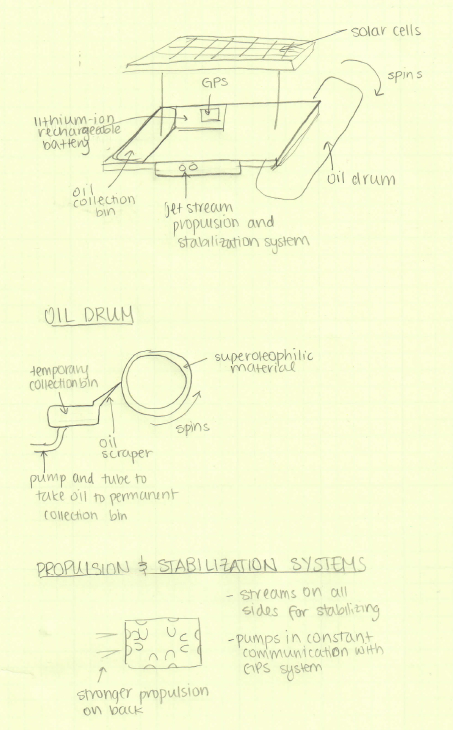 solar cells
spins
GPS
lithium-ion
rechargeable
battery
oil drum
oil
collection
bin
jet stream
propulsion and
stabilization system
OIL DRUM
superoleophilic
material
temporary
collection bin
spins
oil
scraper
pump and tube to
take oil to permanent
collection bin
PROPULSION & STABILIZATION SYSTEMS
- streams on all
sides for stabilizing
- pumps in constant
communication with
GPS system
stronger propulsion
on back